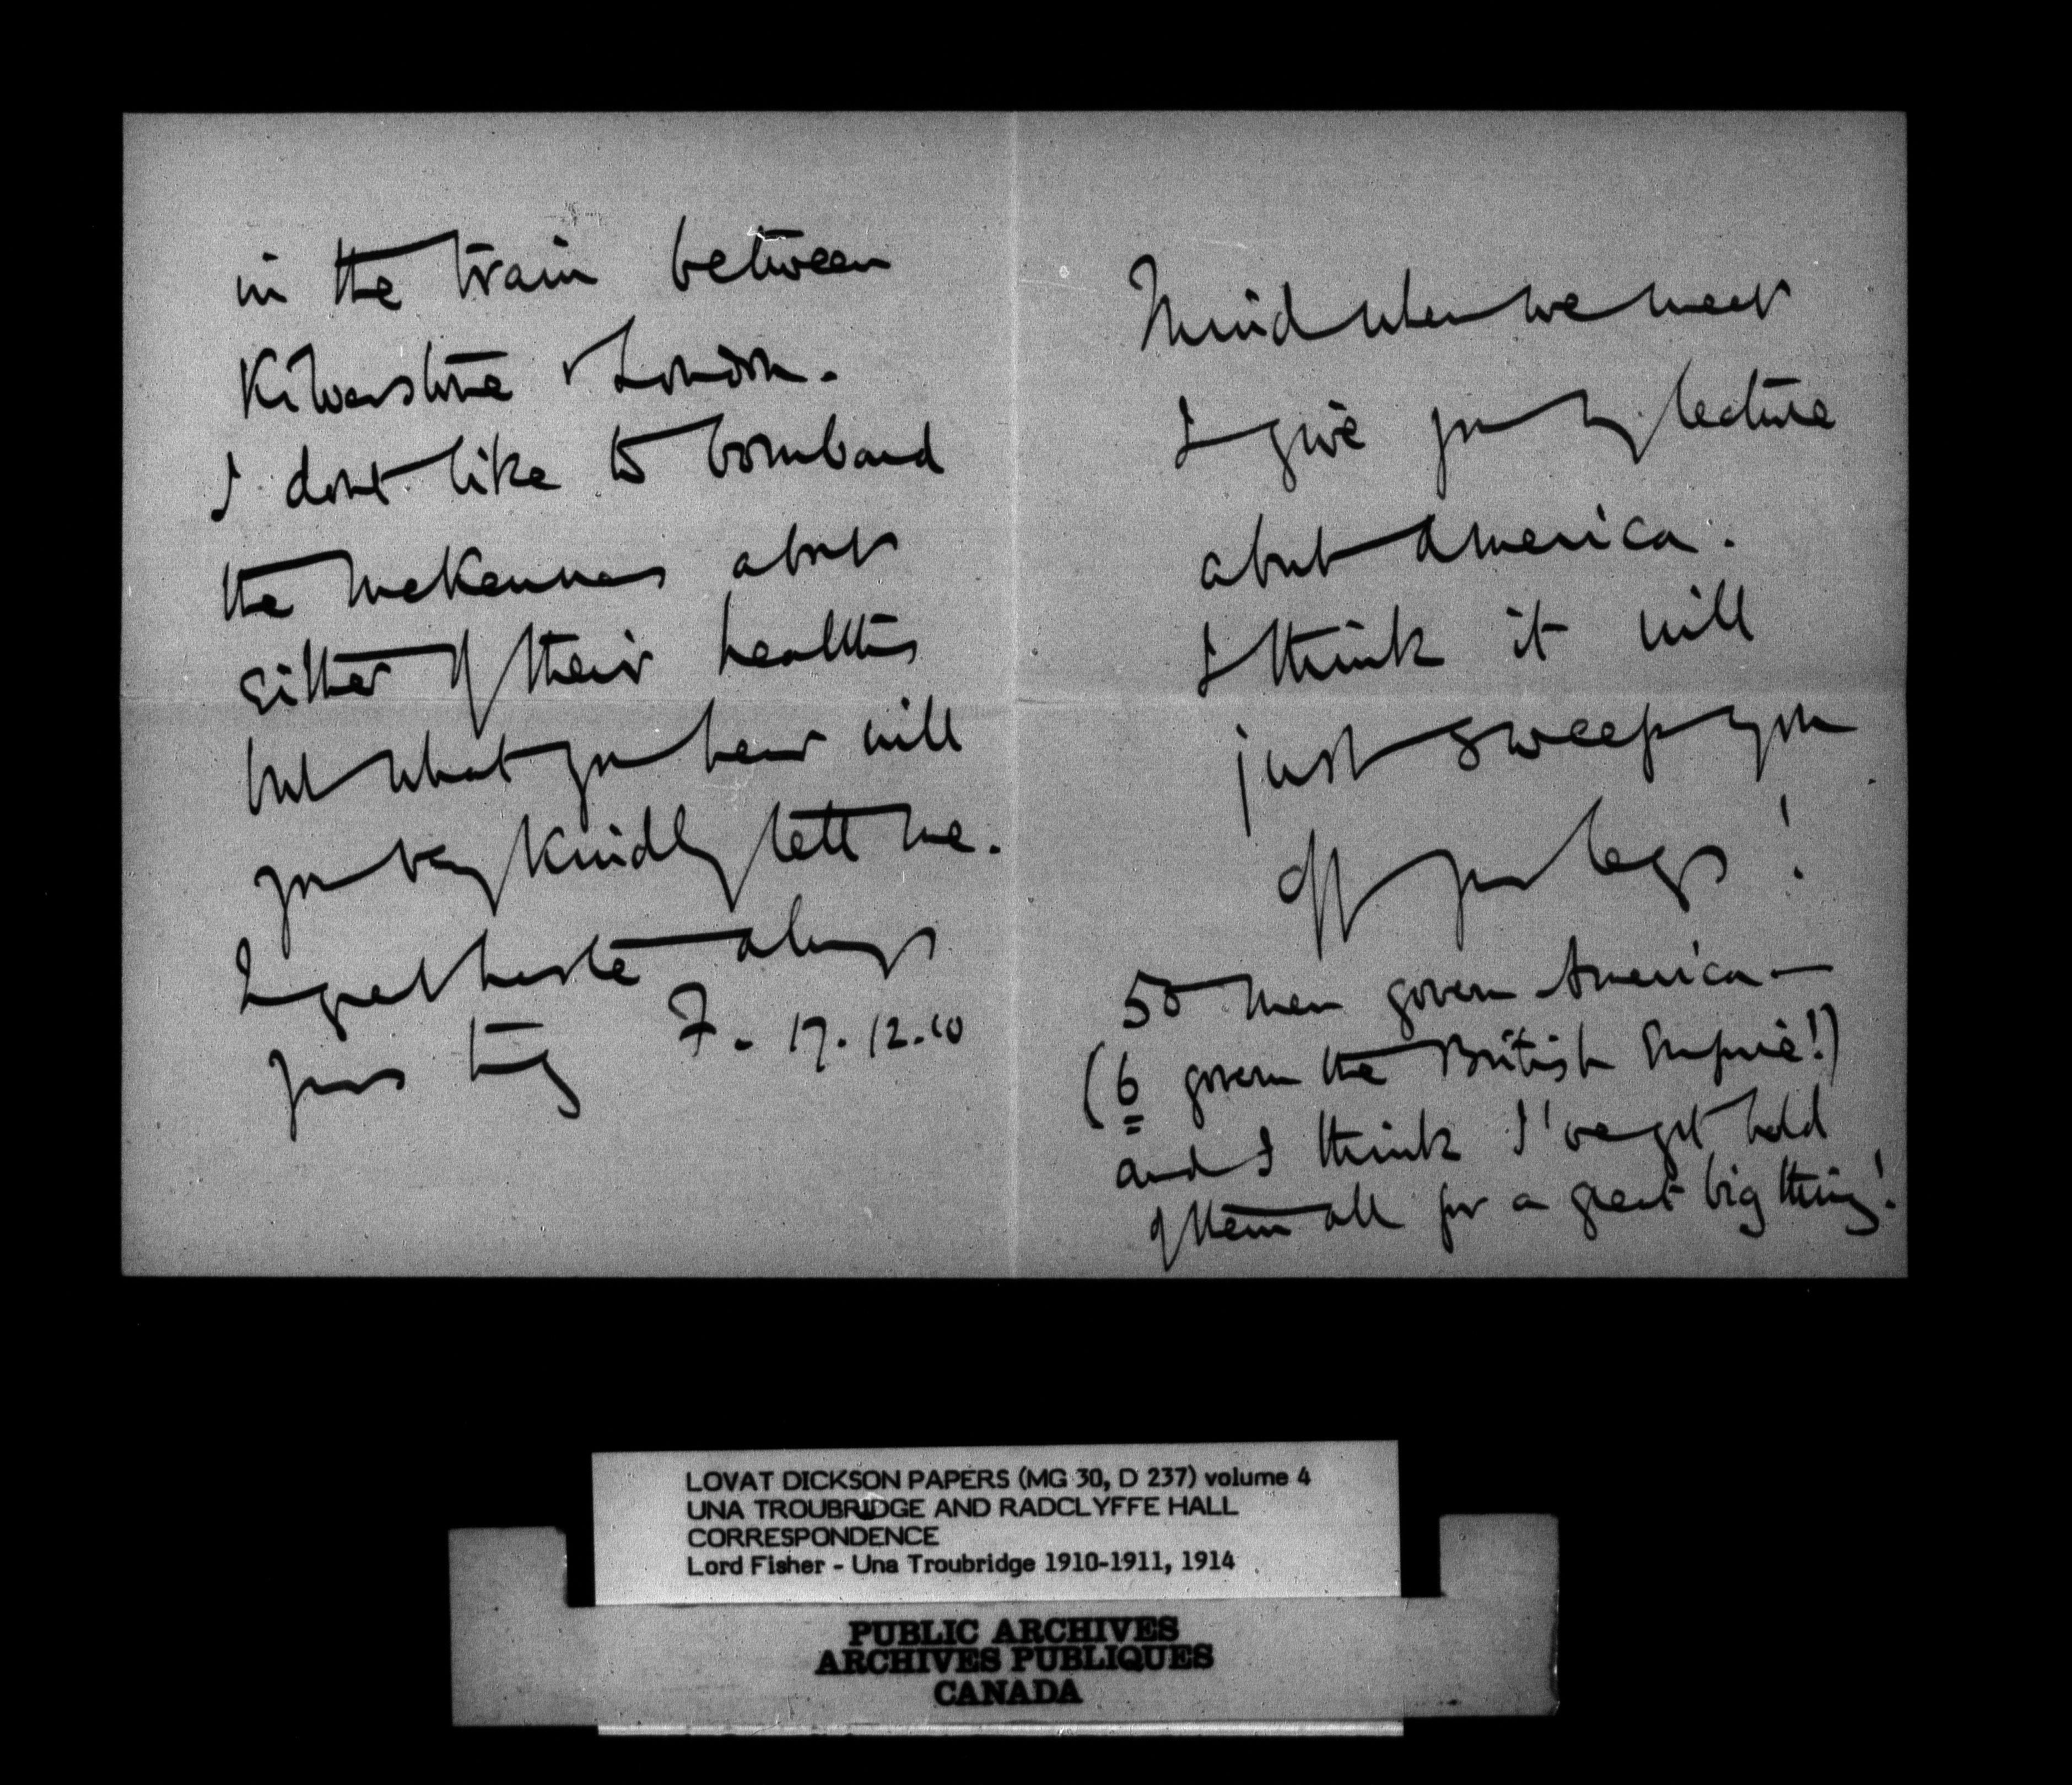 in the train between
Kilverstone & London.
I dont like to bombard
the McKennas about
either of their healths
but what you hear will
you very kindly tell me.
In great haste always
Yours truly F. 17.12.10
Mind when we meet
I give you my lecture
about America.
I think it will
just sweep you
off your legs!
50 men govern America—
(6 govern the British Empire!)
and I think I've got hold
of them all for a great big thing!
LOVAT DICKSON PAPERS (MG 30, D 237) volume 4
UNA TROUBRIDGE AND RADCLYFFE HALL
CORRESPONDENCE
Lord Fisher - Una Troubridge 1910-1911, 1914
PUBLIC ARCHIVES
ARCHIVES PUBLIQUES
CANADA